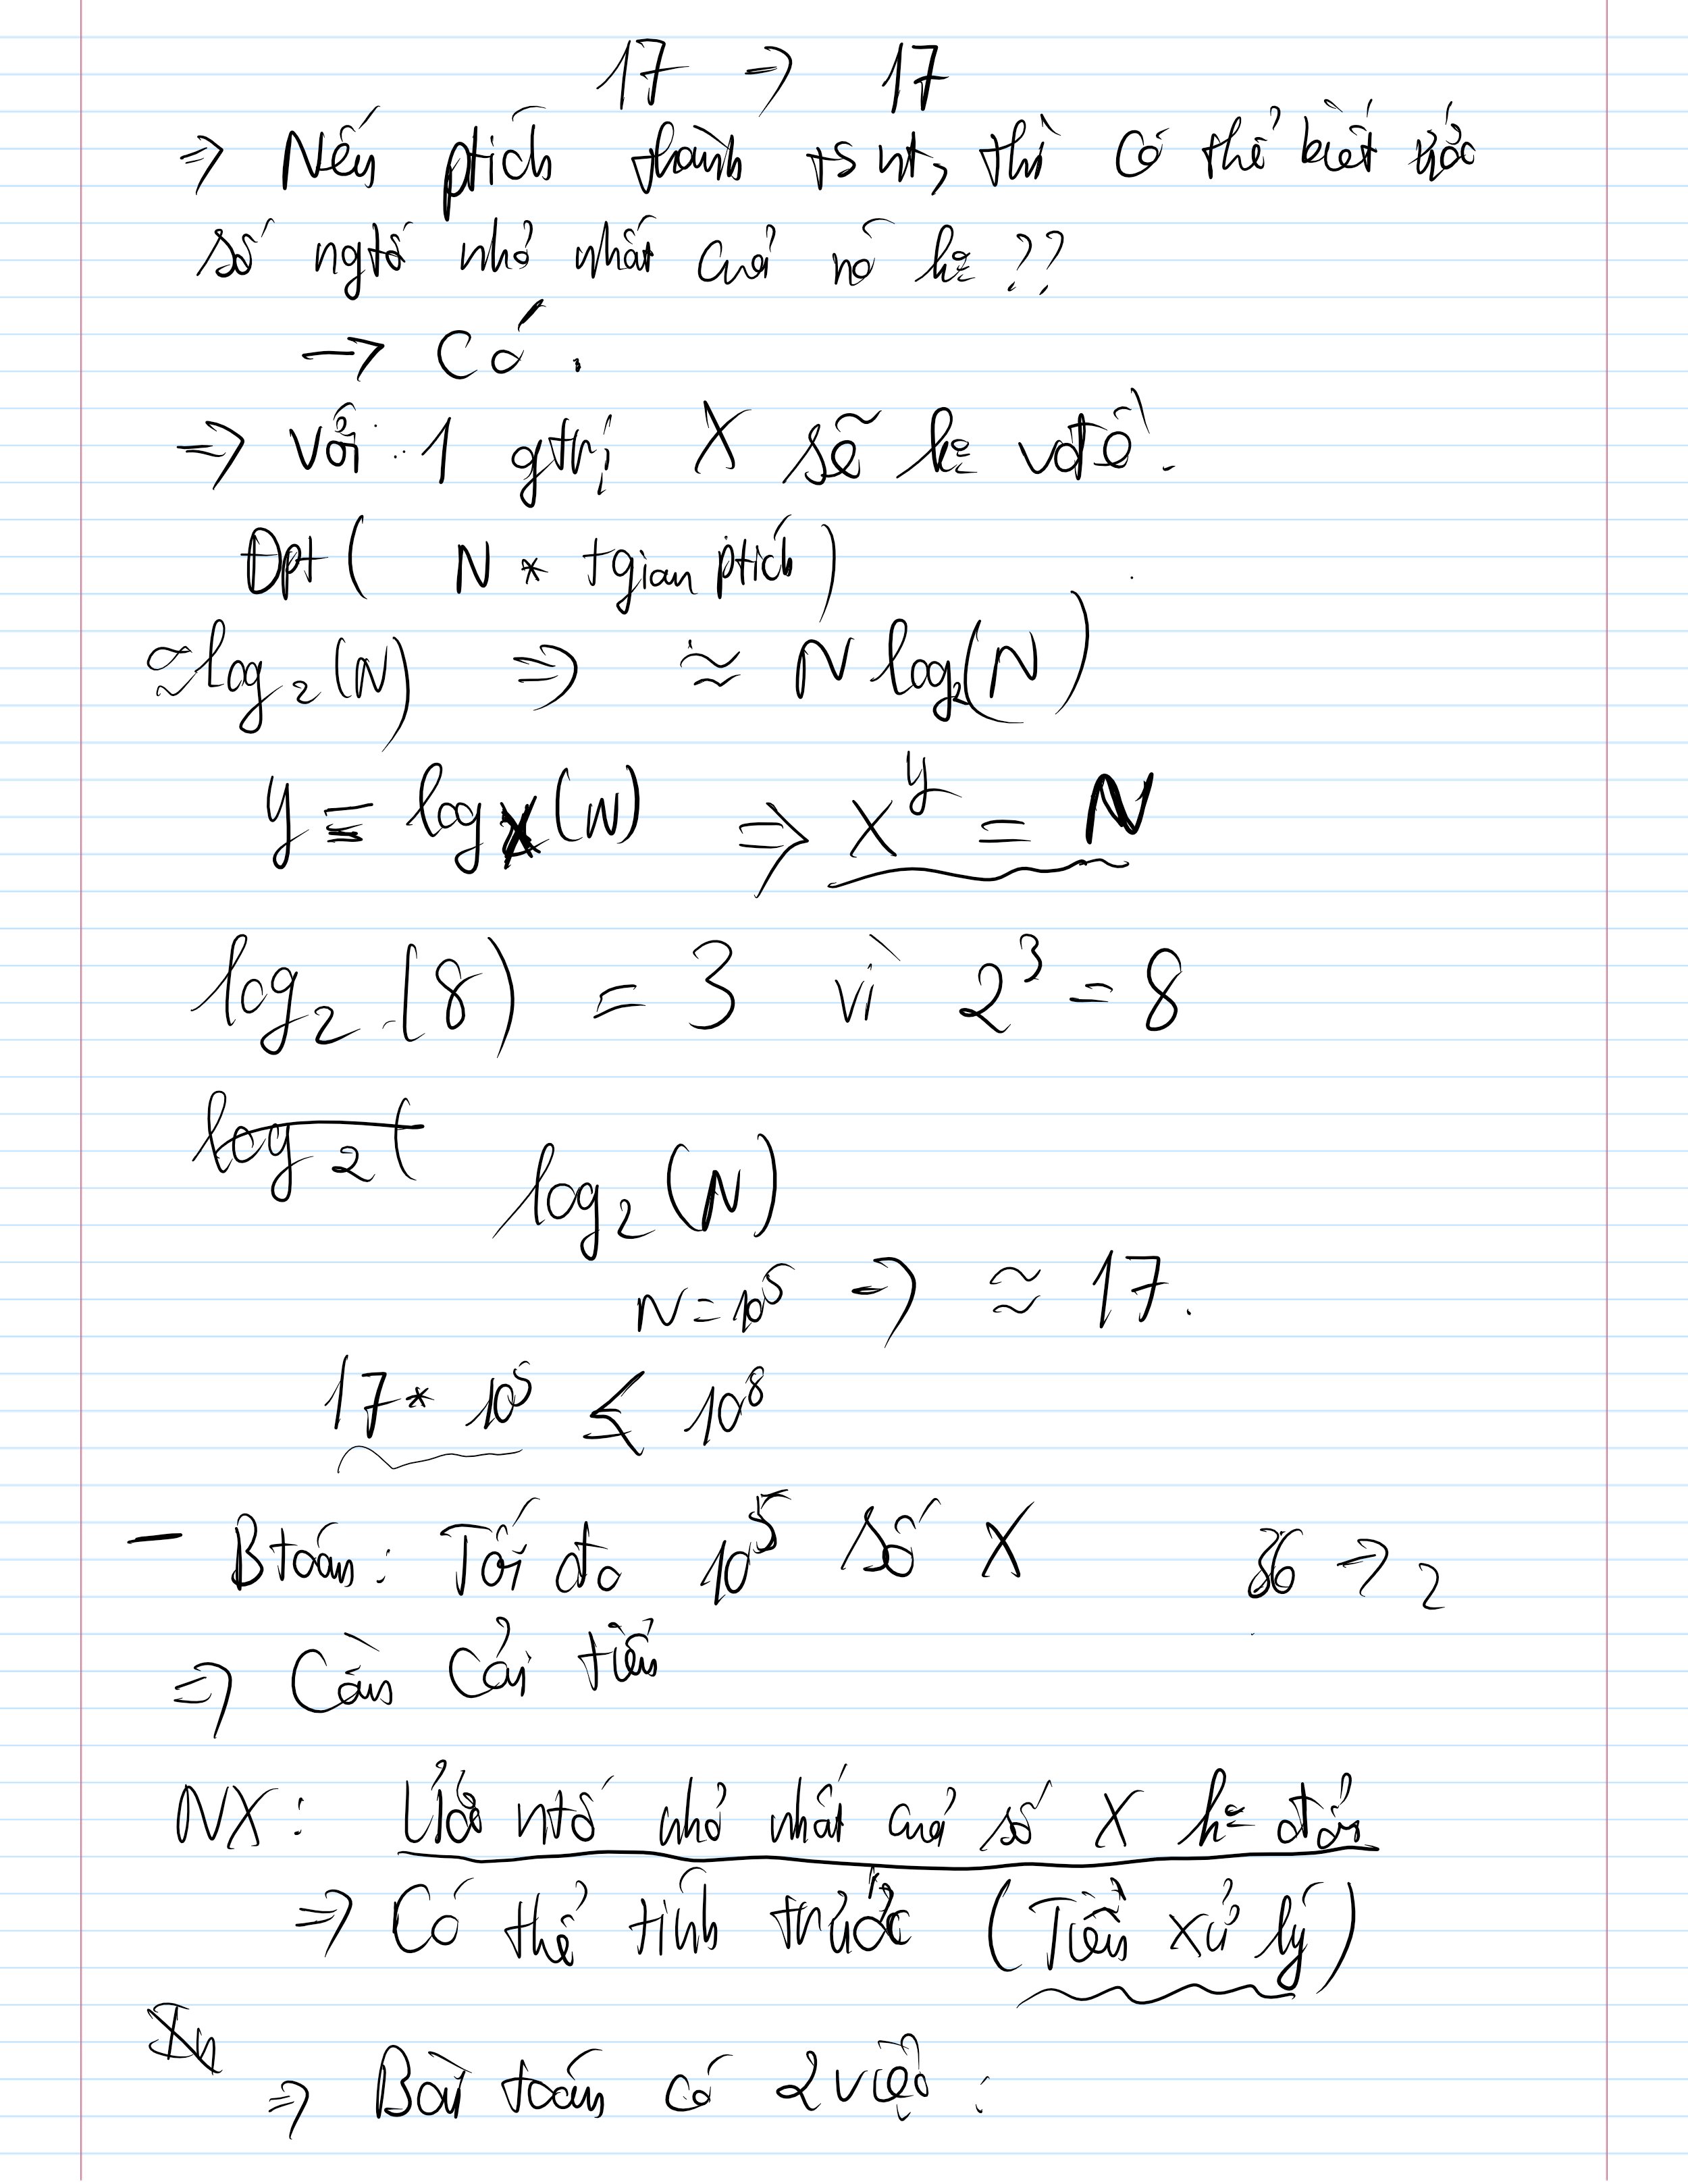 17 => 17
=> Nếu ptích thành ts nt, thì có thể biết ước
số ngtố nhỏ nhất của nó k= ??
-> Có.
=> Với 1 gtrị X sẽ k= vđề.
Đpt ( N * tgian ptích )
≈ log₂(N) => ≈ N log₂(N)
y = logx(N) => x^y = N
log₂(8) = 3 vì 2³ = 8
log₂(
log₂(N)
N = 10⁵ => ≈ 17.
17 * 10⁵ ≤ 10⁸
- Btoán: Tối đa 10⁵ số X 36 => 2
=> Cần cải tiến
NX: Ước ntố nhỏ nhất của số X k= đổi
=> Có thể tính trước (Tiền xử lý)
=> Bài toán có 2 việc: